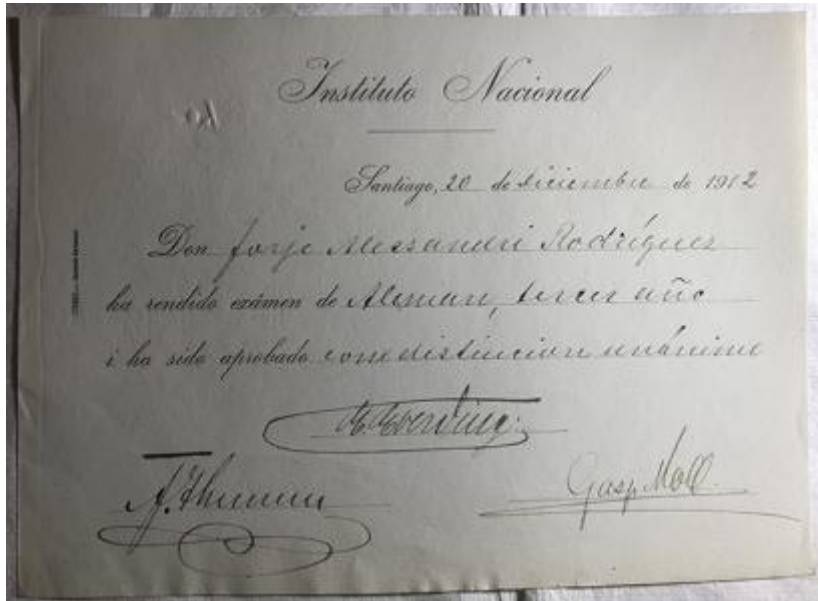 Instituto Nacional
Santiago, 20 de diciembre de 1912
Don Jorje Alessandri Rodríguez
ha rendido exámen de Aleman, tercer año
i ha sido aprobado con distincion unánime
Gasp. Moll.